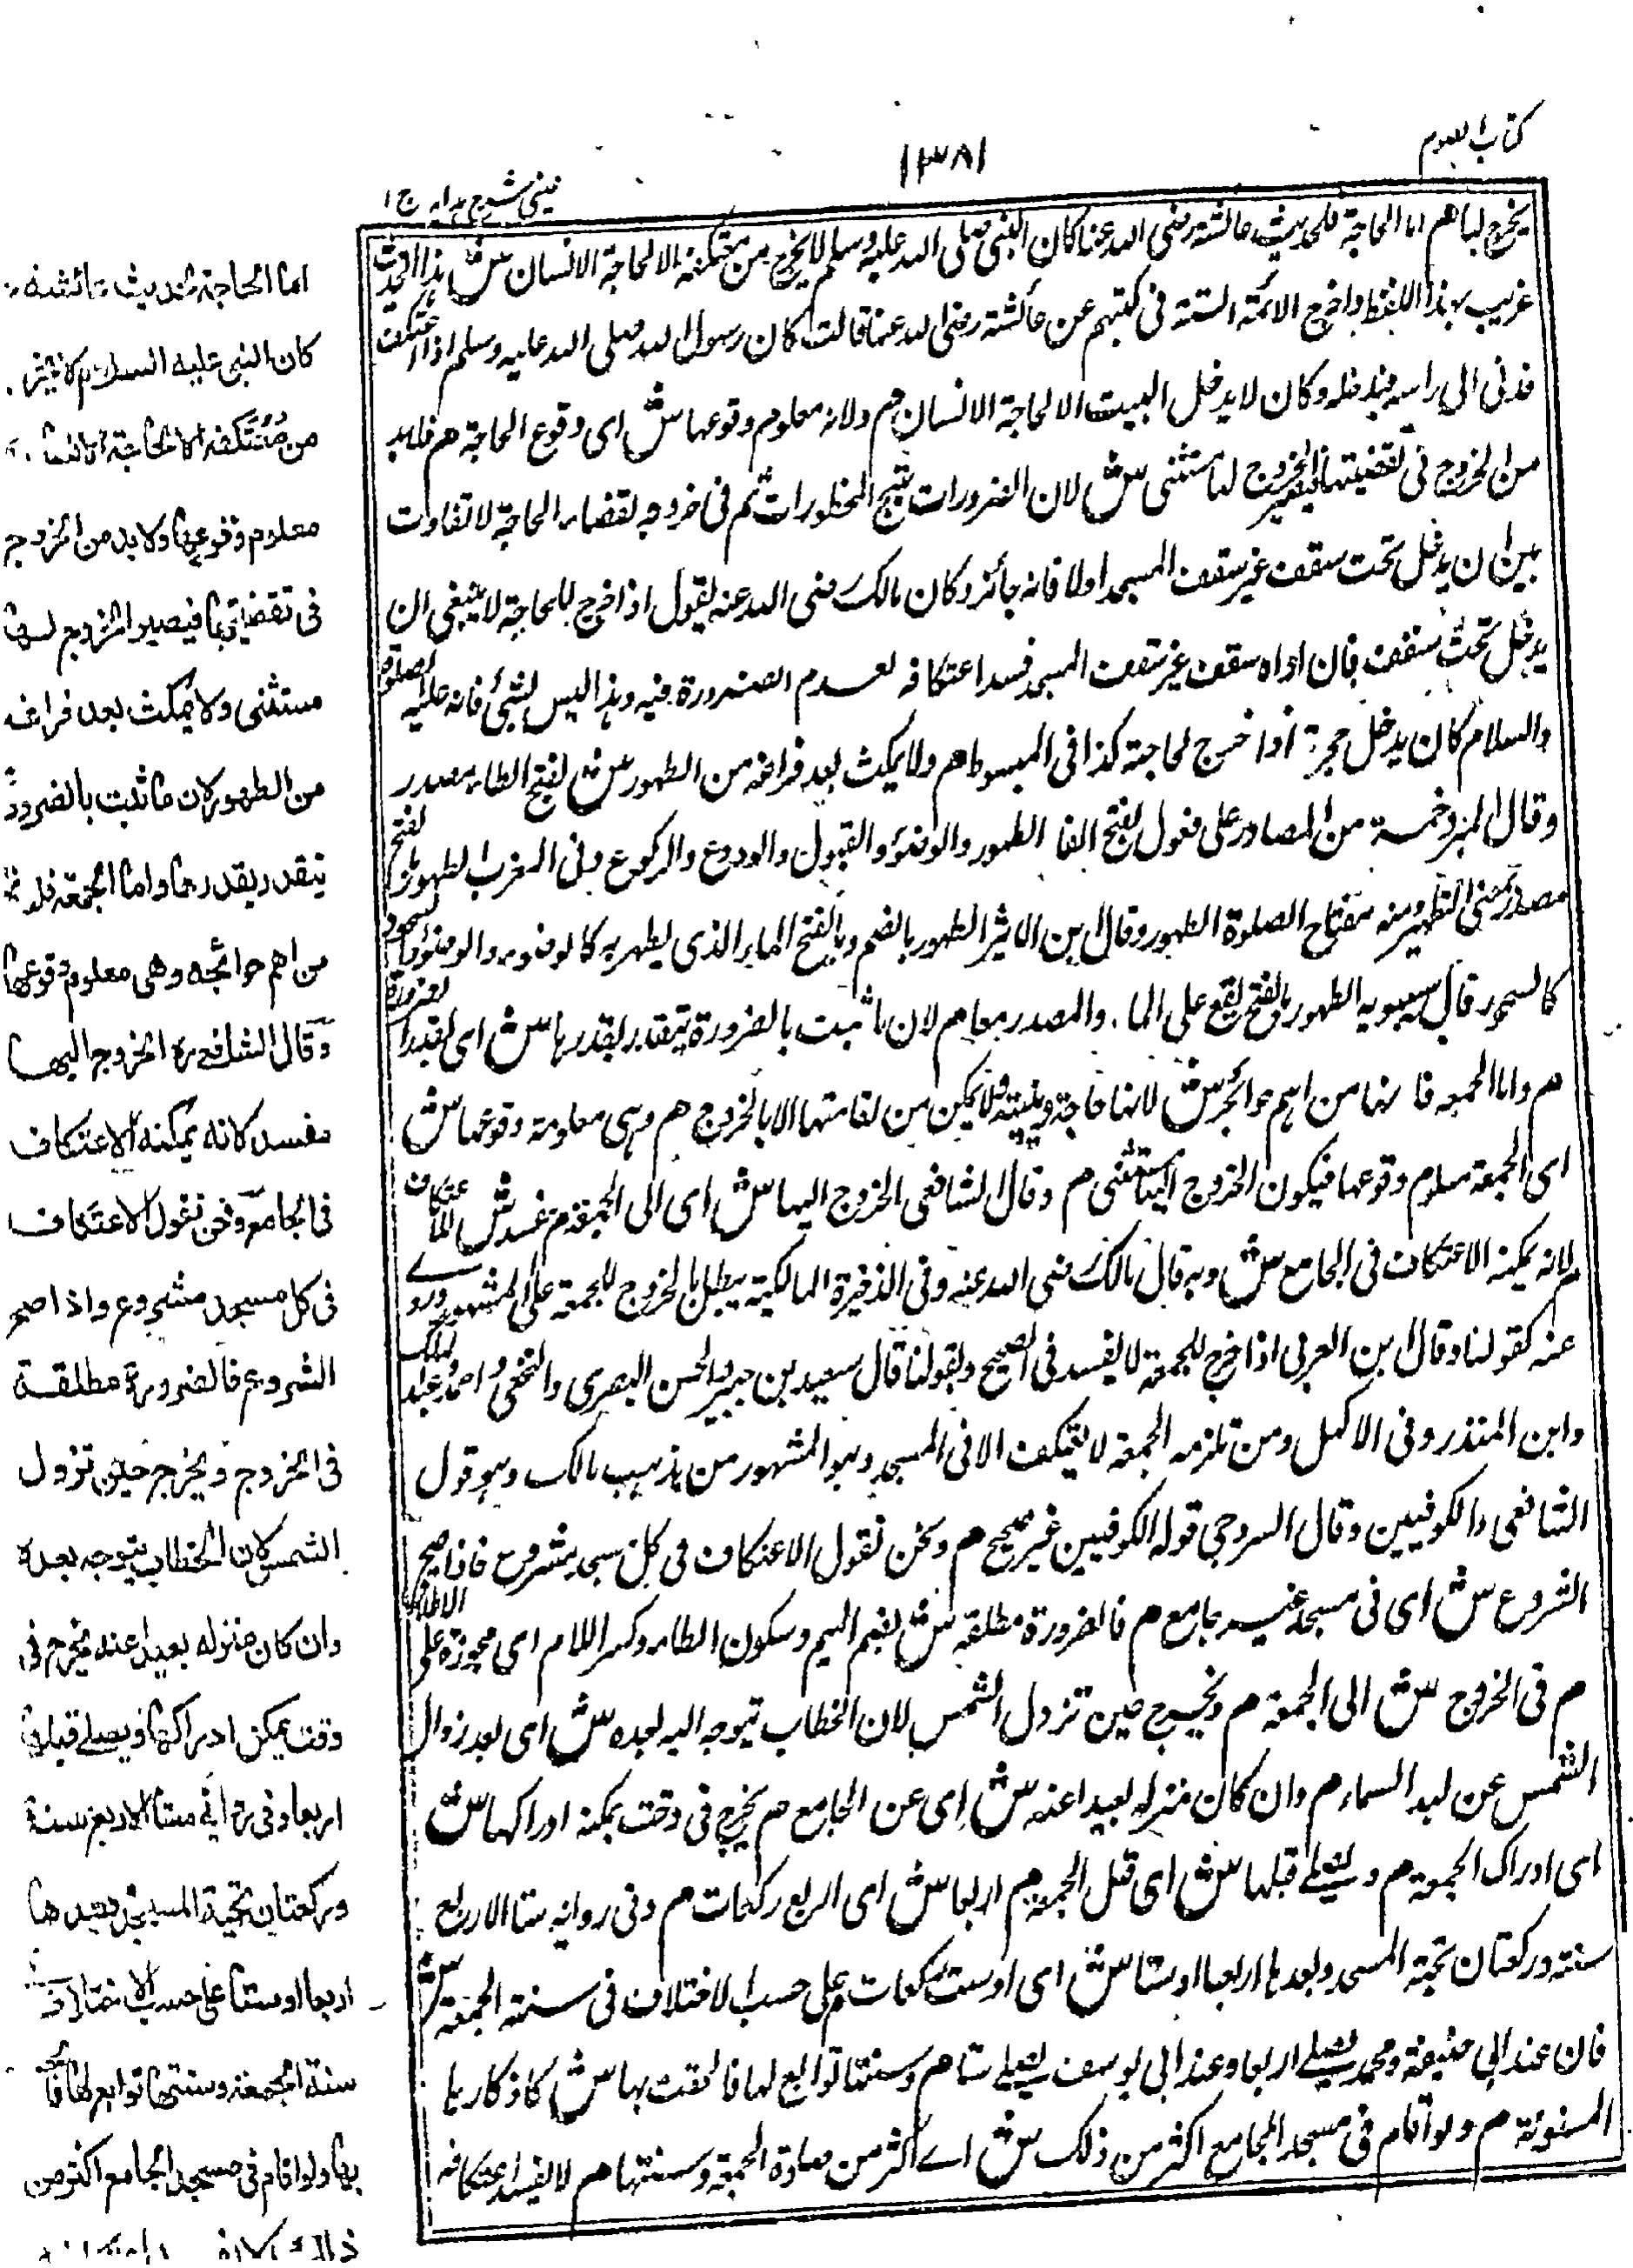 كتاب الصوم
١٣٨١
عینی شرح ہدایہ ج ١
يخرج لها هم اما الحاجة فلحديث عائشة رضى الله عنها كان النبى صلى الله عليه وسلم لا يخرج من معتكفه الا لحاجة الانسان ش هذا الحديث
غريب بهذا اللفظ واخرج الائمة الستة فى كتبهم عن عائشة رضى الله عنها قالت كان رسول الله صلى الله عليه وسلم اذا اعتكف
فدنى الى راسه وكان لا يدخل البيت الا لحاجة الانسان م ولانه معلوم وقوعها ش اى وقوع الحاجة هم فلا بد
من الخروج فى تقضيتها فيصير الخروج لها مستثنى ش لان الضرورات تبيح المحظورات ثم فى خروجه لقضاء الحاجة لا تفاوت
بين ان يدخل تحت سقف غير سقف المسجد اولا فانه جائز وكان مالك رضى الله عنه يقول اذا خرج للحاجة لا ينبغى ان
يدخل تحت سقف فان اواه سقف غير سقف المسجد فسد اعتكافه لعدم الضرورة فيه وهذا ليس بشئ فانه عليه الصلوة
والسلام كان يدخل حجرته اذا خرج لحاجته كذا فى المبسوط هم ولا يمكث بعد فراغه من الطهور ش بفتح الطاء مصدر
وقال المبرد خمسة من المصادر على فعول بفتح الفا الطهور والوضوء والقبول والودوع والركوع وفى المغرب الطهور بالفتح
مصدر بمعنى التطهير ومنه مفتاح الصلوة الطهور وقال ابن الاثير الطهور بالضم وبالفتح الماء الذى يطهر به كالوضوء والوضوء والسحور
كالسحور قال سيبويه الطهور بالفتح يقع على الماء والمصدر معا هم لان ما ثبت بالضرورة يتقدر بقدرها ش اى بقدر الضرورة
هم واما الجمعة فانها من اهم حوائجه ش لانها حاجة دينية ولا يمكن من اقامتها الا بالخروج هم وهى معلومة وقوعها ش
اى الجمعة معلوم وقوعها فيكون الخروج اليها مستثنى م وقال الشافعى الخروج اليها ش اى الى الجمعة م مفسد ش للاعتكاف
م لانه يمكنه الاعتكاف فى الجامع ش وبه قال مالك رضى الله عنه وفى الذخيرة المالكية يبطل بالخروج للجمعة على المشهور وروى
عنه كقولنا وقال ابن العربى اذا خرج للجمعة لا يفسد فى الصحيح وبقولنا قال سعيد بن جبير والحسن البصرى والنخعى واحمد وعبد الملك
وابن المنذر وفى الاكمل ومن تلزمه الجمعة لا يعتكف الا فى المسجد وهو المشهور من مذهب مالك وهو قول
الشافعى والكوفيين وقال السروجى قوله الكوفيين غير صحيح م ونحن نقول الاعتكاف فى كل مسجد مشروع فاذا صح
الشروع ش اى فى مسجد غير جامع هم فالضرورة مطلقة ش بضم الميم وسكون الطاء وكسر اللام اى مجوزة على الاطلاق
م فى الخروج ش الى الجمعة م ويخرج حين تزول الشمس لان الخطاب يتوجه اليه بعده ش اى بعد زوال
الشمس عن كبد السماء م وان كان منزله بعيدا عنه ش اى عن الجامع هم يخرج فى وقت يمكنه ادراكها ش
اى ادراك الجمعة م ويصلے قبلها ش اى قبل الجمعة م اربعا ش اى اربع ركعات م وفى رواية ستا الاربع
سنة وركعتان تحية المسجد وبعدها اربعا او ستا ش اى او ست ركعات م على حسب الاختلاف فى سنة الجمعة ش
فان عند ابى حنيفة ومحمد يصلے اربعا وعند ابى يوسف يصلے ستا هم وسنتها توابع لها فالحقت بها ش كاذكارها
المسنونة م ولو اقام فى مسجد الجامع اكثر من ذلك ش اے اكثر من صلاة الجمعة وسنتها هم لا يفسد اعتكافه
اما الحاجة لحديث عائشة
كان النبى عليه السلام لا يخرج
من مُعْتَكَفه الا لحاجة الانسان
معلوم وقوعها ولا بد من الخروج
فى تقضيتها فيصير الخروج لها
مستثنى ولا يمكث بعد فراغه
من الطهور لان ما ثبت بالضرورة
يتقدر بقدرها واما الجمعة فلانها
من اهم حوائجه وهى معلوم وقوعها
وقال الشافعى ره الخروج اليها
مفسد لانه يمكنه الاعتكاف
فى الجامع ونحن نقول الاعتكاف
فى كل مسجد مشروع واذا صح
الشروع فالضرورة مطلقة
فى الخروج ويخرج حين تزول
الشمس لان الخطاب يتوجه بعده
وان كان منزله بعيدا عنه يخرج فى
وقت يمكن ادراكها ويصلے قبلها
اربعا وفى رواية ستا الاربع سنة
وركعتان تحية المسجد وبعدها
اربعا او ستا على حسب الاختلاف
سنة الجمعة وسنتها توابع لها
بها ولو اقام فى مسجد الجامع اكثر من